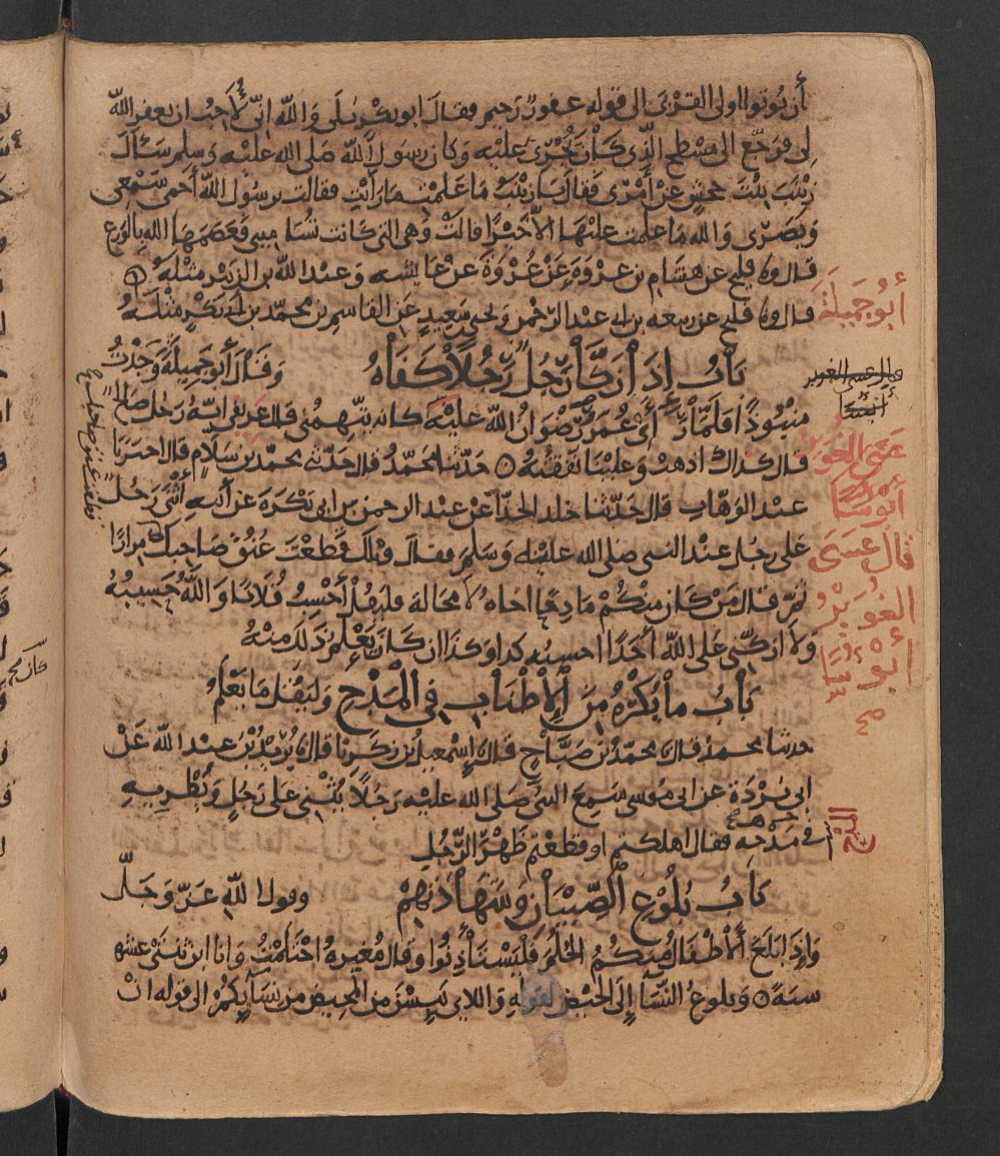 أن يؤتوا اولى القربى الى قوله غفور رحيم فقال ابو بكر بلى والله انى لأحب ان يغفر الله
لى فرجع الى مسطح الذى كان يجرى عليه وكان رسول الله صلى الله عليه وسلم سأل
زينب بنت جحش عن أمرى فقال يا زينب ما علمت ما رأيت فقالت يرسول الله أحمى سمعى
وبصرى والله ما علمت عليها الا خيرا قالت وهى التى كانت تسامينى فعصمها الله بالورع
قال و فليح عن هشام بن عروة عن عروة عن عايشه وعبد الله بن الزبير مثله
قال و فليح عن ربيعه بن ابى عبد الرحمن ويحيى بن سعيد عن القاسم بن محمد بن ابى بكر مثله
أبو جميلة
باب إذا زكى رجل رجلا كفاه وقال أبو جميلة وجدت
منبوذا فلما رآنى عمر رضوان الله عليه كانه يتهمنى قال عريفى انه رجل صالح
قال كذاك اذهب وعلينا نفقته حدثنا محمد قال حدثنى محمد بن سلام قال اخبرنا
عبد الوهاب قال حدثنا خلد الحذا عن عبد الرحمن بن ابى بكرة عن أبيه أثنى رجل
على رجل عند النبى صلى الله عليه وسلم فقال ويلك قطعت عنق صاحبك مرارا
ثم قال من كان منكم مادحا اخاه لا محالة فليقل أحسب فلانا والله حسيبه
ولا ازكى على الله أحدا احسبه كدا وكذا ان كان يعلم ذلك منه
باب ما يكره من الإطناب فى المدح وليقل ما يعلم
حدثنا محمد قال محمد بن صباح قال إسمعيل بن زكريا قال بريد بن عبد الله عن
ابى بردة عن ابى موسى سمع النبى صلى الله عليه رجلا يثنى على رجل ويطريه
فى مدحه فقال اهلكتم او قطعتم ظهر الرجل
المدح
باب بلوغ الصبيان وشهادتهم وقول الله عز وجل
وإذا بلغ الأطفال منكم الحلم فليستأذنوا وقال مغيرة احتلمت وانا ابن ثنتى عشره
سنة وبلوغ النسا إلى الحيض لقوله واللاى يئسن من المحيض من نسايكم الى قوله ان
عسى الغوير
أبؤسا
قال عسى
الغوير
أبؤسا